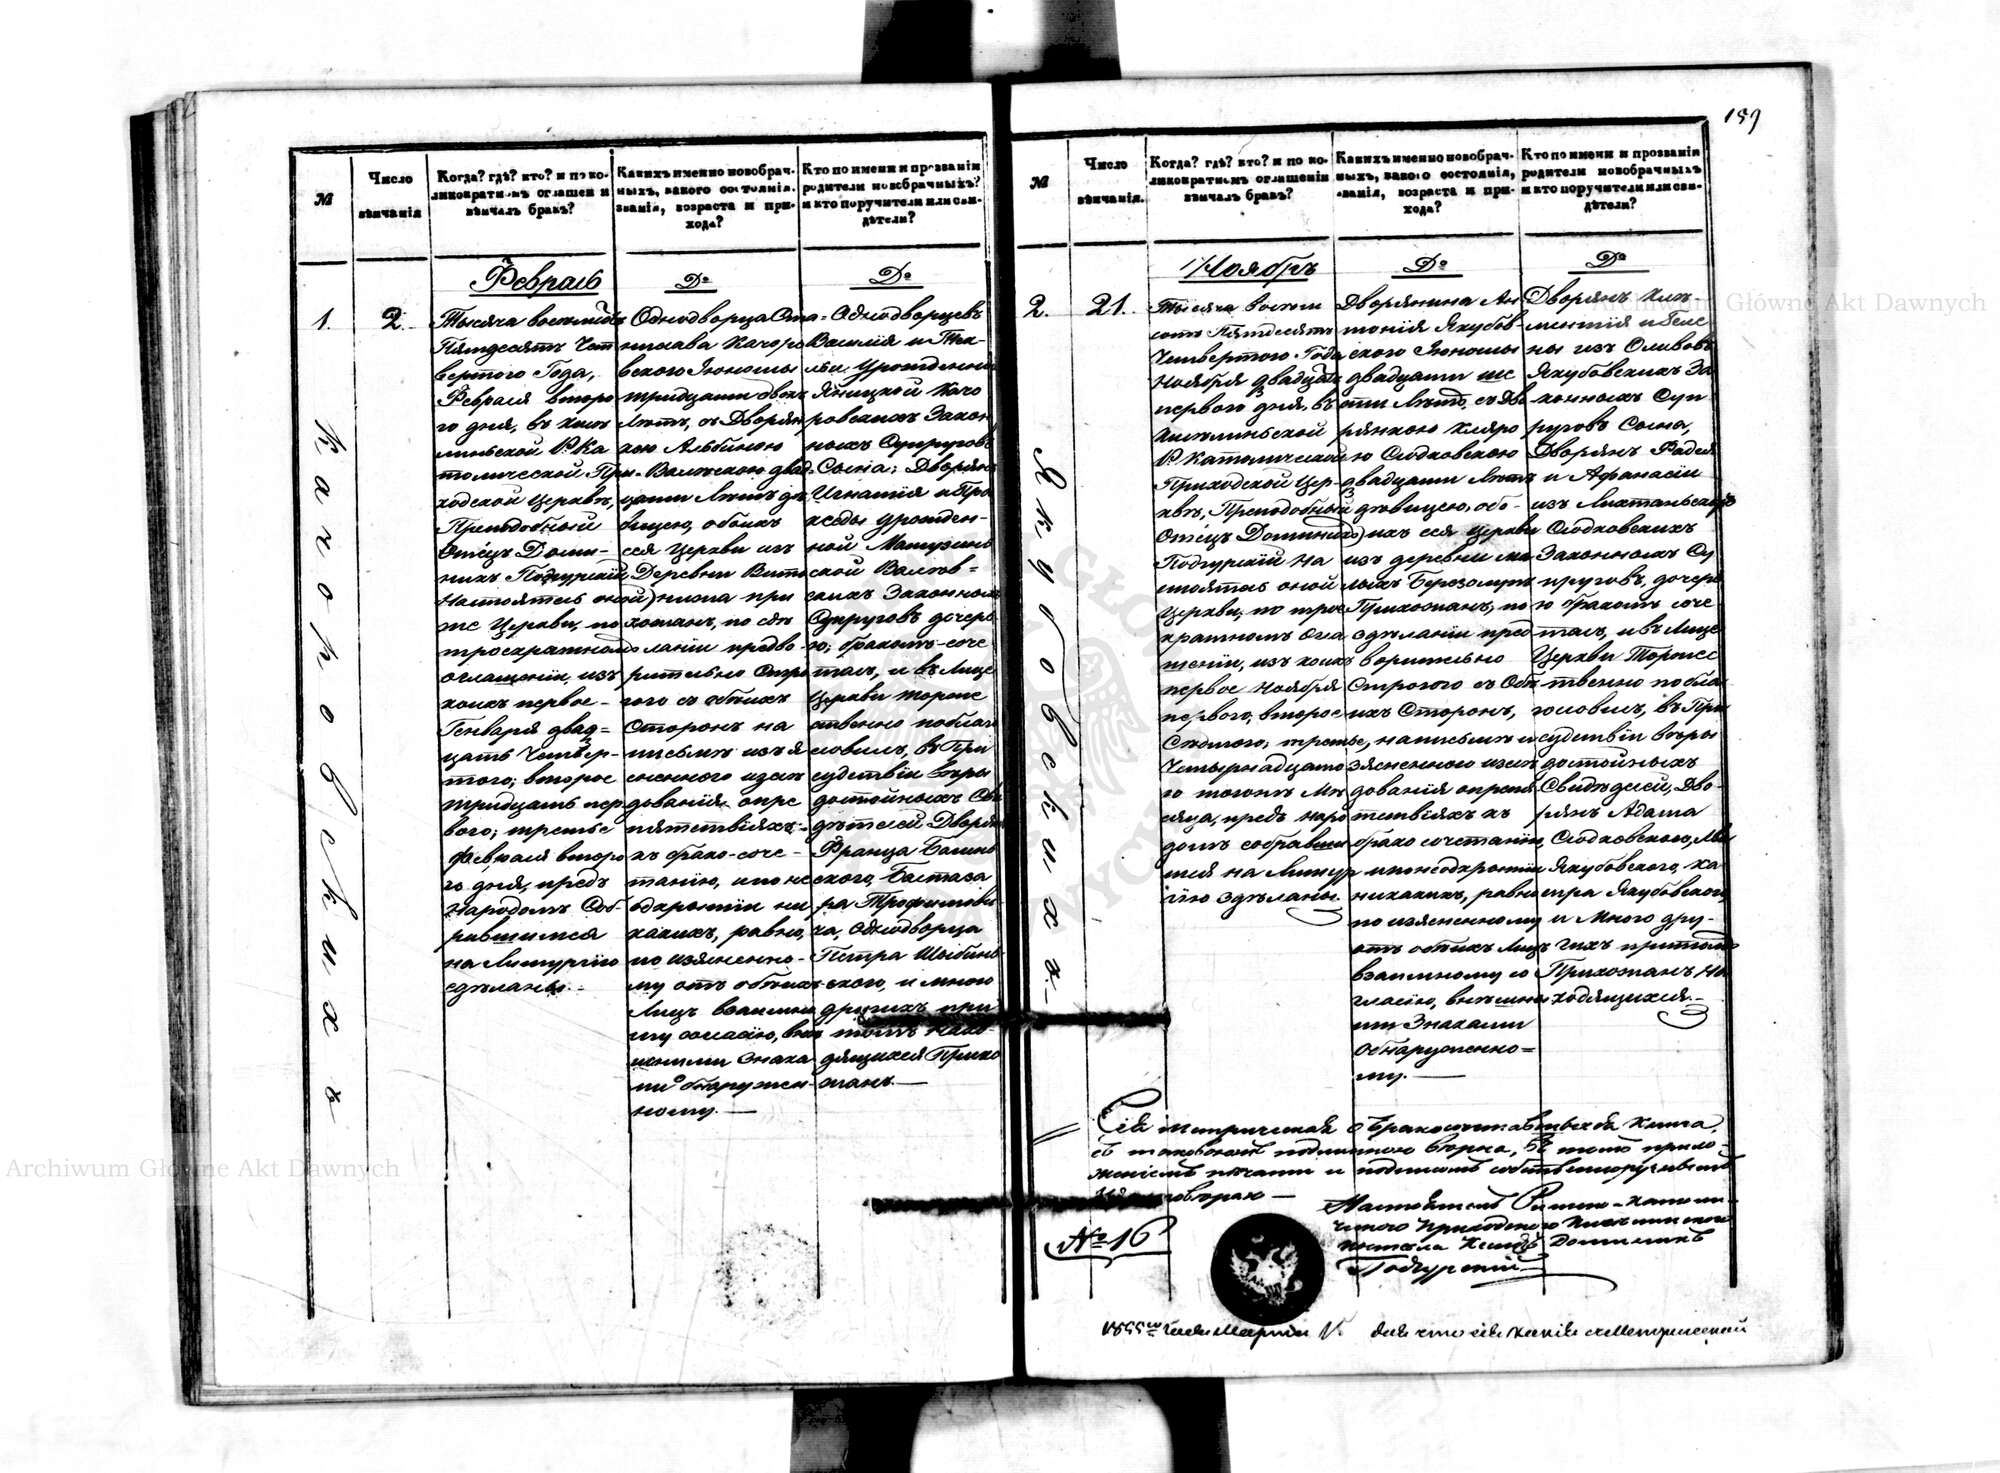 №
Число
вѣнчанія
Когда? гдѣ? кто? и по ко-
ликократномъ оглашеніи
вѣнчалъ бракъ?
Какихъ именно новобрач-
ныхъ, какого состоянія,
званія, возраста и при-
хода?
Кто по имени и прозванію
родители новобрачныхъ?
и кто поручители или сви-
дѣтели?
Февраль
До
До
1.
2.
Качоровскихъ
Тысяча восемьсотъ
Пятдесятъ Чет
вертого Года,
Февраля второ
го дня, въ
Р. Ка
толической При
ходской Церквѣ,
Преподобный
Отецъ Доми-
никъ Подгурскій
Настоятель оной
же Церкви, по
троекратномъ
оглашеніи, изъ
коихъ первое -
Генваря двад=
цать Четвер-
того; второе
тридцать пер
вого; третье
Февраля второ
го дня, предъ
Народомъ Соб
равшимся
на Литургію
сдѣланы.-
Однодворца Ста=
нислава Качоро
вского Юношы
тридцати двохъ
Лѣтъ, съ Дворян
кою Альбиною
Валявскою двад-
цати Лѣтъ дѣ
вицею, обоихъ
сея Церкви изъ
Деревни
при
хожанъ, по сдѣ
лании предва-
рительно Стро
гого съ обоихъ
Сторонъ на
письмѣ изъя
сненного изслѣ
дованія о пре
пятствіяхъ
къ брако-соче-
танію, и по не
одкрытіи ни
какихъ, равно,
по изъясненно-
му отъ обоихъ
Лицъ взаимно
му согласію, внѣ
шними знака
ми обнаружен
ному. —
Однодворцевъ
Василія и Тек-
ли, Урожденной
Яницкой Качо
ровскихъ Закон
ныхъ Супруговъ
Сына; Дворянъ
Игнатія и Про
кседы урожден-
ной
ской Валяв=
скихъ Законныхъ
Супруговъ дочерь
ю; бракомъ-соче
талъ, и въ Лице
Церкви торже
ственно поблаго
словилъ, въ При
судствіи вѣро
достойныхъ Сви
дѣтелей Дворянъ
Франца
ского, Балтаза
ра Трофимови
ча, Однодворца
Петра
ского, и много
другихъ при
томъ нахо
дящихся Прихо
жанъ. —
189
№
Число
вѣнчанія.
Когда? гдѣ? кто? и по ко-
ликократномъ оглашеніи
вѣнчалъ бракъ?
Какихъ именно новобрач-
ныхъ, какого состоянія,
званія, возраста и при-
хода?
Кто по имени и прозванію
родители новобрачныхъ
и кто поручители или сви-
дѣтели?
Ноябръ
До
До
2.
21.
Якубовскихъ.-
Тысяча восемь
сотъ Пятдесятъ
Четвертого Года
Ноября двадцать
первого дня, въ
Р. Католической
Приходской Цер-
квѣ, Преподобный
Отецъ Доминикъ
Подгурскій На
стоятель оной
Церкви, по трое
кратномъ огла
шеніи, изъ коихъ
первое Ноября
первого, второе
Седмого, третье,
Четырнадцато
го тогожъ Мѣ
сяца, предъ наро
домъ собравши
мся на Литур
гію сдѣланы.
Дворянина Ан
тонія Якубов-
ского Юношы
двадцати ше
сти Лѣтъ, съ Дво
рянкою Кляро
ю Сlodковскою
двадцати Лѣтъ
дѣвицею, обо-
ихъ сея Церкви
изъ деревни Ма
лыхъ
Прихожанъ, по
сдѣланіи пред
варительно
Строгого съ Обо
ихъ Сторонъ,
на письмѣ и
зъясненного изслѣ
дованія о препя
тствіяхъ къ
брако сочетанію,
и по неодкрытіи
никакихъ, равно
по изъясненному
отъ обоихъ Лицъ
взаимному со
гласію, внѣшни
ми Знаками
обнаруженно=
му. —
Дворянъ Кли-
ментія и Геле
ны изъ
Якубовскихъ За
конныхъ Суп
руговъ Сына,
Дворянъ
и Афанасіи
изъ
Слодковскихъ
Законныхъ Су
пруговъ, дочерь
ю бракомъ соче
талъ, и въ Лице
Церкви Торже
ственно побла
гословилъ, въ При
судствіи вѣро
достойныхъ
Свидѣтелей, Дво-
рянъ Адама
Слодковского,
Якубовского, Ка
спра Якубовского,
и Много дру-
гихъ притомъ
Прихожанъ На
ходящихся.-
Сія метрическая о бракосочитавшихся книга,
съ таковою подлинною вѣрна, въ томъ прило-
женіемъ печати и подписомъ собственноручнымъ
№ 16
Настоятель Римско-Католи-
ческого Приходского
костела Ксендзъ Доминикъ
Подгурскій
1855го года Марта
Archiwum Główne Akt Dawnych
Archiwum Główne Akt Dawnych